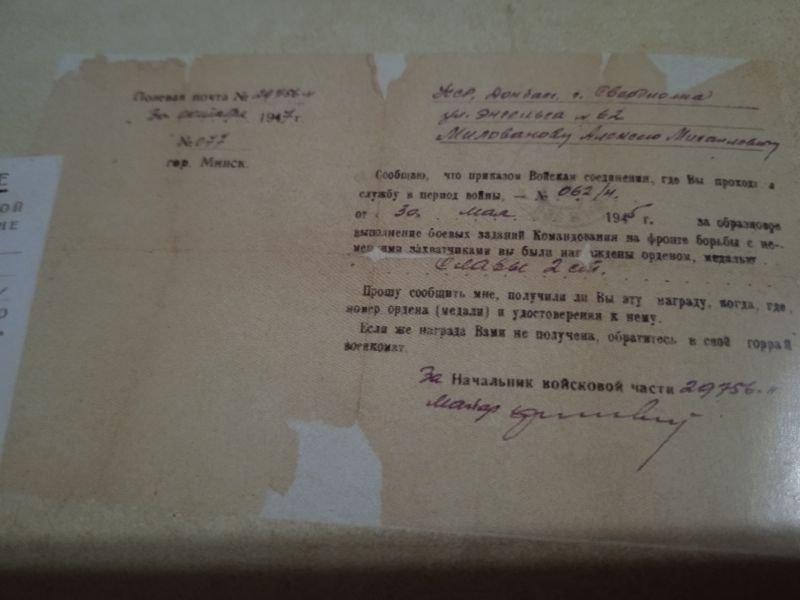 Полевая почта № 29756-н
30 октября 1947 г.
№ 077
гор. Минск.
УССР, Донбас, г.
ул. Энгельса № 62
Милованову Алексею Михайловичу
Сообщаю, что приказом Войская соединения, где Вы проходи а
службу в период войны, — № 062/н.
от 30. мая 194 г. за образцовое
выполнение боевых заданий Командования на фронте борьбы с не-
мецкими захватчиками вы были награждены орденом, медалью
Славы 2 ст.
Прошу сообщить мне, получили ли Вы эту награду, когда, где,
номер ордена (медали) и удостоверения к нему.
Если же награда Вами не получена, обратитесь в свой горрай
военкомат.
За Начальник войсковой части 29756-н
Майор
Е
ОЙ
НЕ